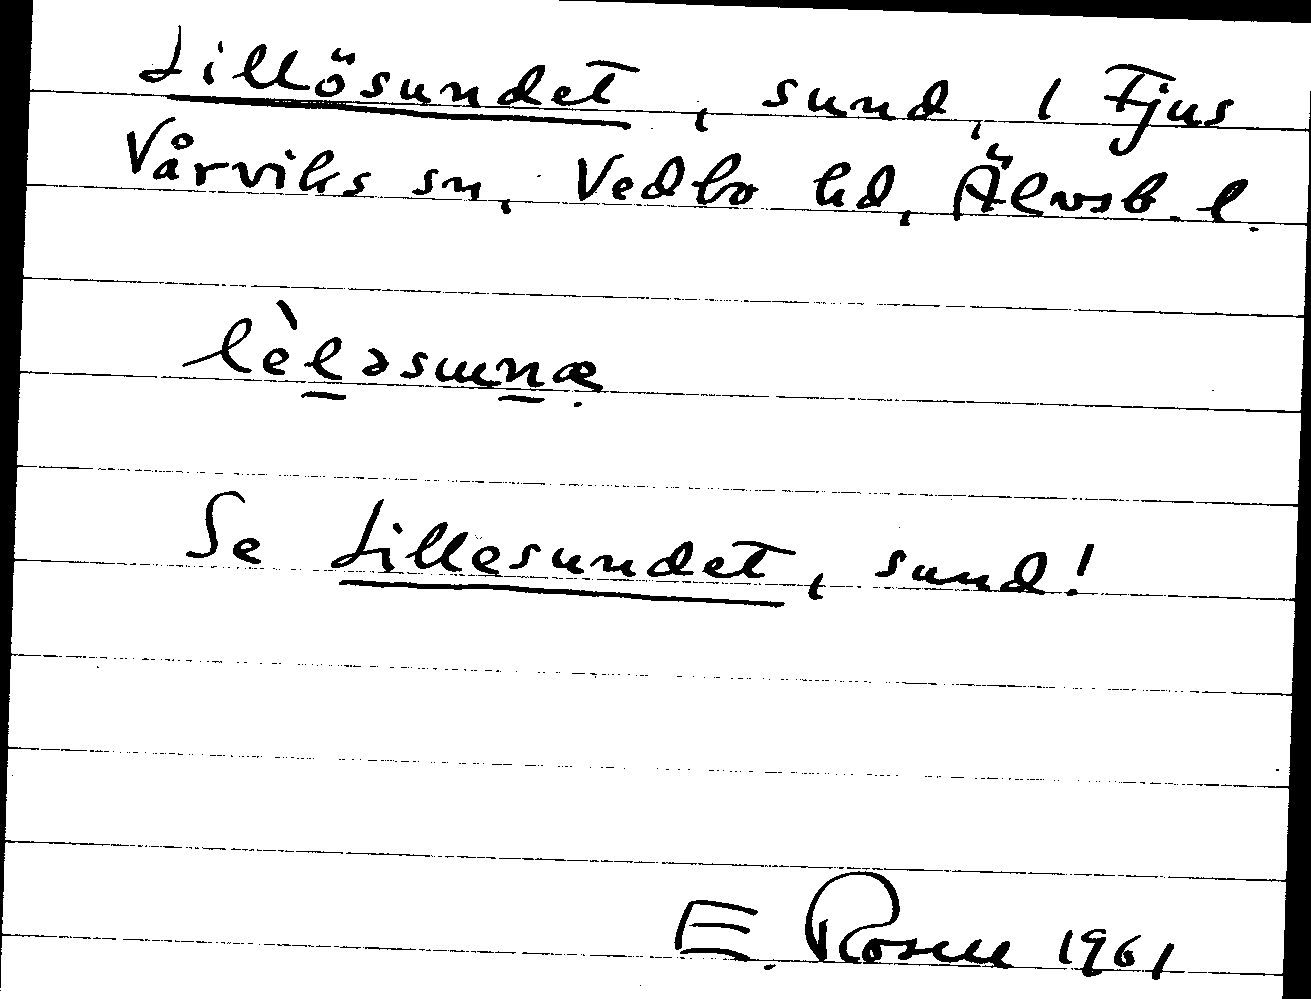 Lillösundet, sund, 1 Fjus
Vårviks sn, Vedbo hd, Älvsb. l.
lèləsunæ
Se Lillesundet, sund!
E. Rosell 1961